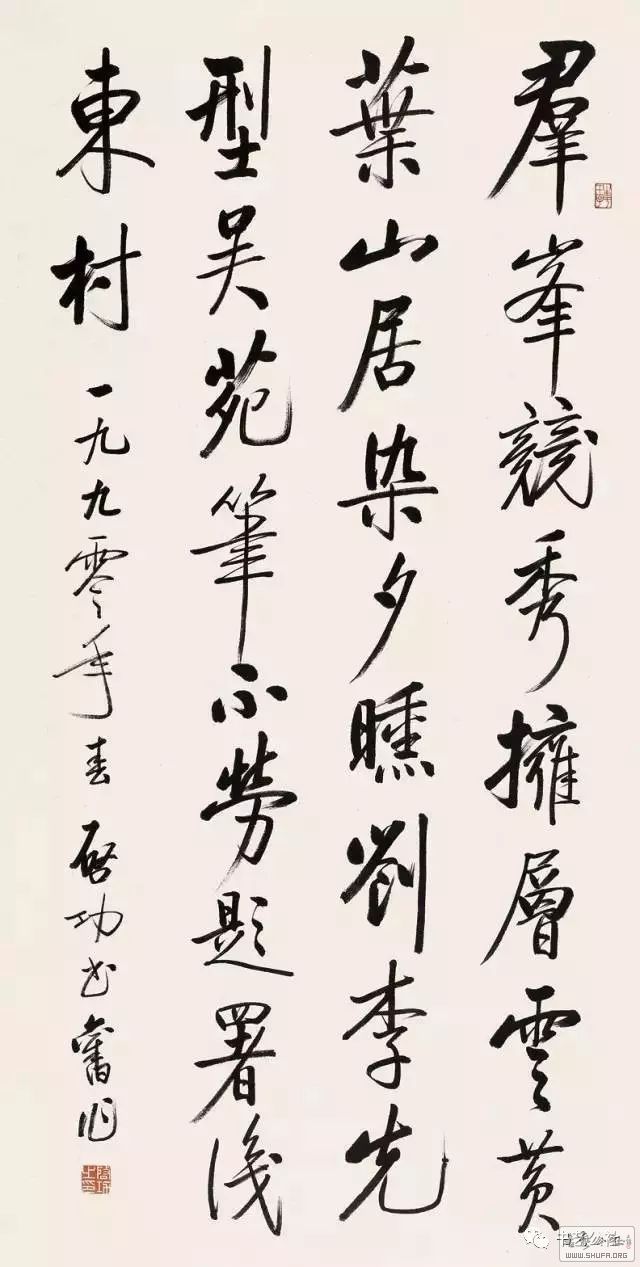 羣峯競秀擁層雲黄
葉山居染夕曛劉李先
型吴苑筆不勞題署識
東村 一九九零年春 啓功書舊作
WWW.SHUFA.ORG